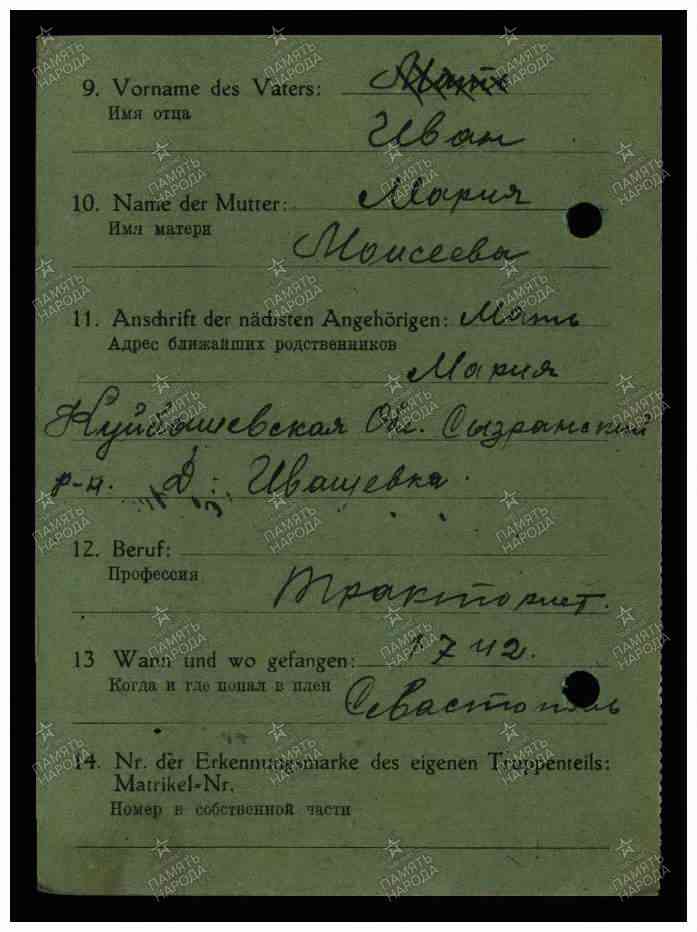 9. Vorname des Vaters:
Имя отца
Иван
10. Name der Mutter: Мария
Имя матери
Моисеева
11. Anschrift der nächsten Angehörigen: Мать
Адрес ближайших родственников
Мария
Куйбышевская Обл. Сызранский
р-н. Д: Ивашевка.
12. Beruf:
Профессия
Тракторист.
13 Wann und wo gefangen: 1 7 42.
Когда и где попал в плен
Севастополь
14. Nr. der Erkennungsmarke des eigenen Truppenteils:
Matrikel-Nr.
Номер в собственной части
ПАМЯТЬ
НАРОДА